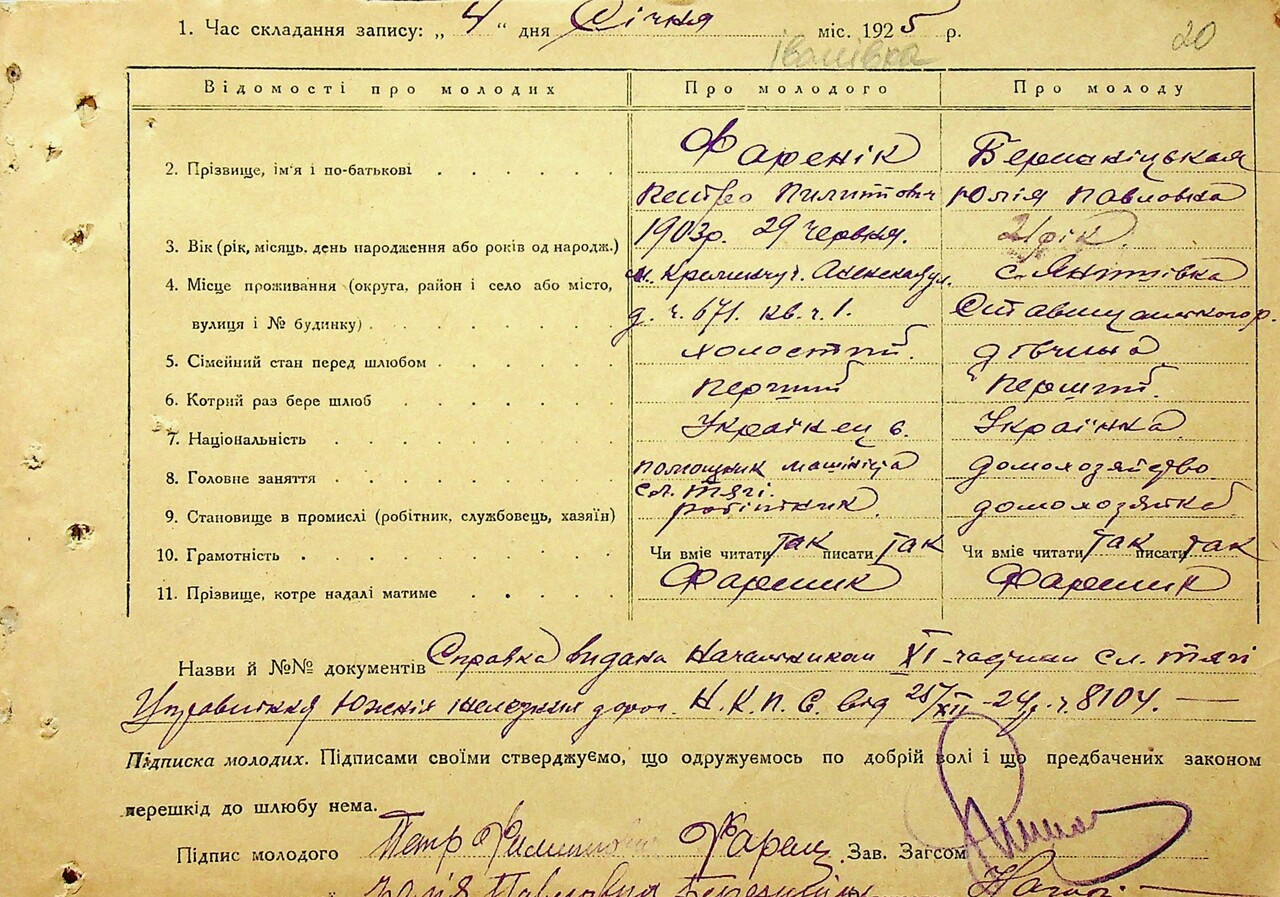 1. Час складання запису: „ 4 “ дня Січня міс. 1925 р.
Іванівка
20
Відомості про молодих Про молодого Про молоду
2. Прізвище, ім'я і по-батькові Фаренік
Петро Пилипович Юлія Павловна
3. Вік (рік, місяць, день народження або років од народж.) 1903р. 29 червня. 21 рік.
4. Місце проживання (округа, район і село або місто, м. Кременчуг. с.
вулиця і № будинку) д. ч. 671. кв. ч. 1.
5. Сімейний стан перед шлюбом холостий. дівчина
6. Котрий раз бере шлюб перший перший.
7. Національність Українець. Українка
8. Головне заняття помощник машініста домохозяйство
сл. тягі.
9. Становище в промислі (робітник, службовець, хазяїн) робітник. домохозяйка
10. Грамотність Чи вміє читати так писати так Чи вміє читати так писати так
11. Прізвище, котре надалі матиме Фареник Фареник
Назви й №№ документів Справка видана Начальником XI сл. тягі
Управління Южнія дорог. Н.К.П.С. від 25/XII-24р. ч. 8104.
Підписка молодих. Підписами своїми стверджуємо, що одружуємось по добрій волі і що предбачених законом
перешкід до шлюбу нема.
Підпис молодого Петр Зав. Загсом
„ Павловна